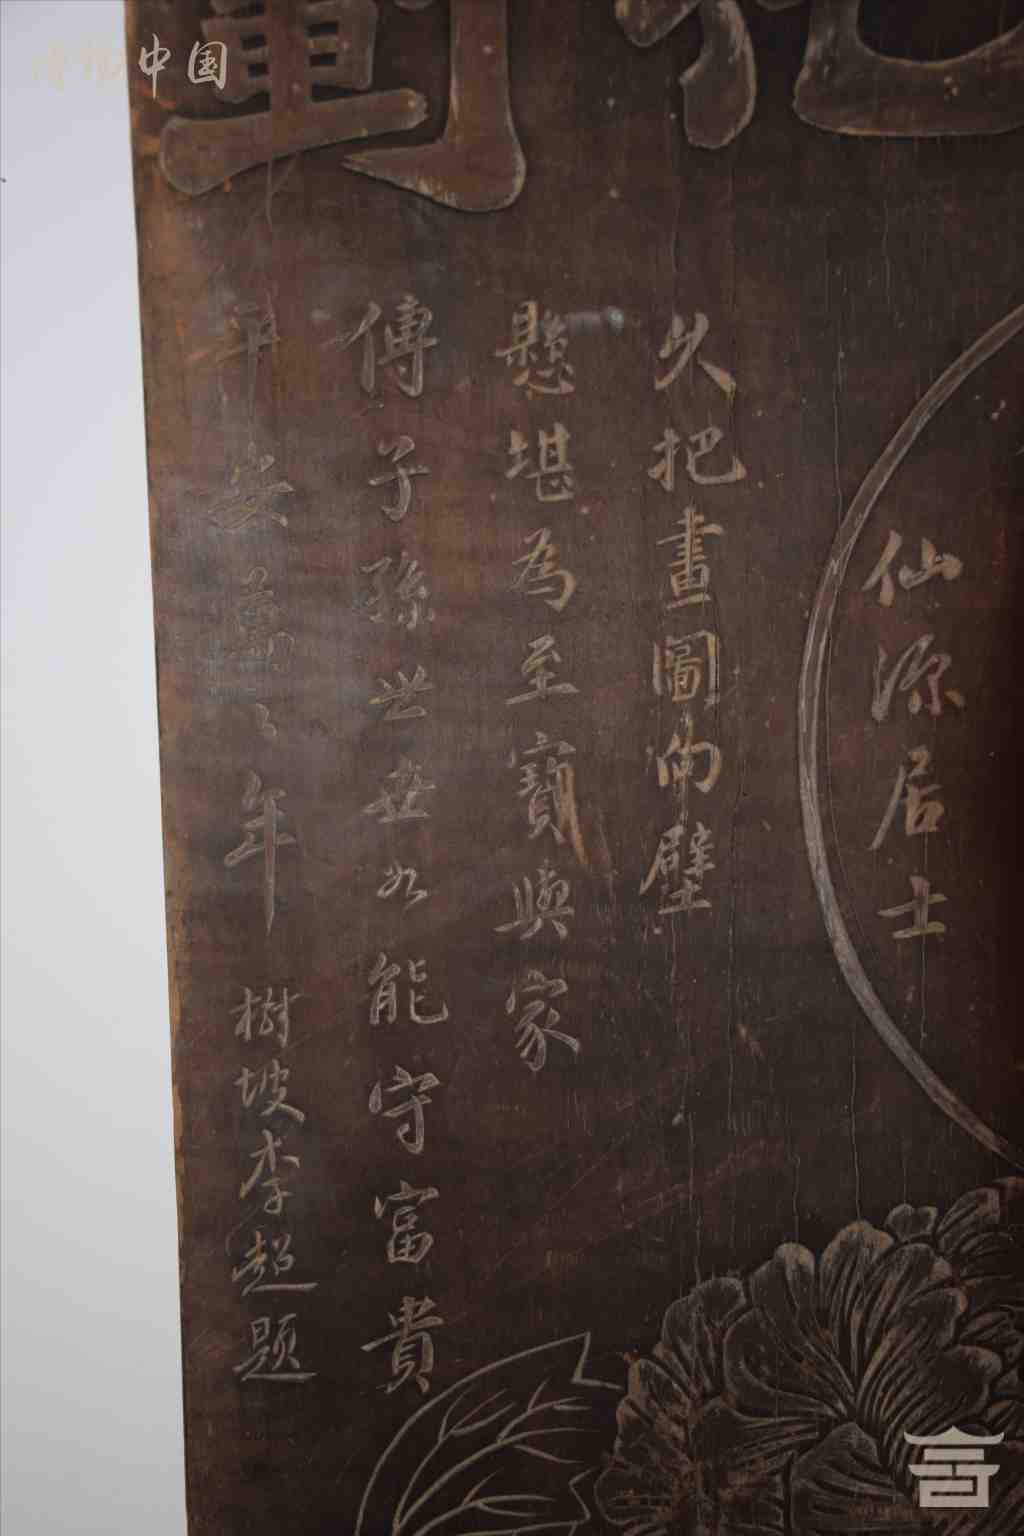 仙源居士
久把畫圖向壁
懸堪為至寶與家
傳子孫世世如能守富貴
平安萬〻年 樹坡李超題
中国